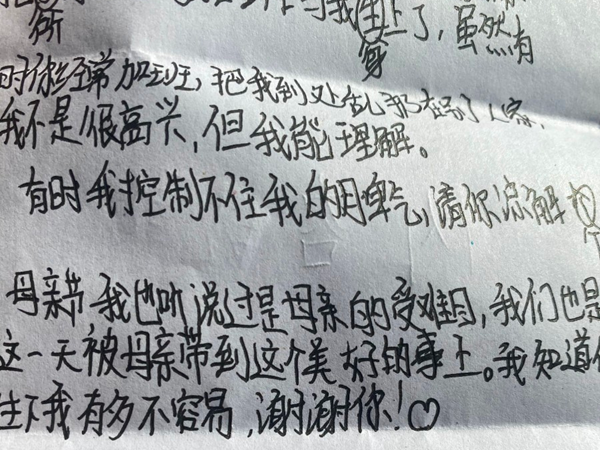 所
我生上了,虽然有
身
时你经常加班,把我到处
我不是很高兴,但我能理解。
有时我控制不住我的脾气,请你谅解
母亲节我也听说过是母亲的受难日,我们也是
这一天被母亲带到这个美好的事上。我知道你
生下我有多不容易,谢谢你!♡